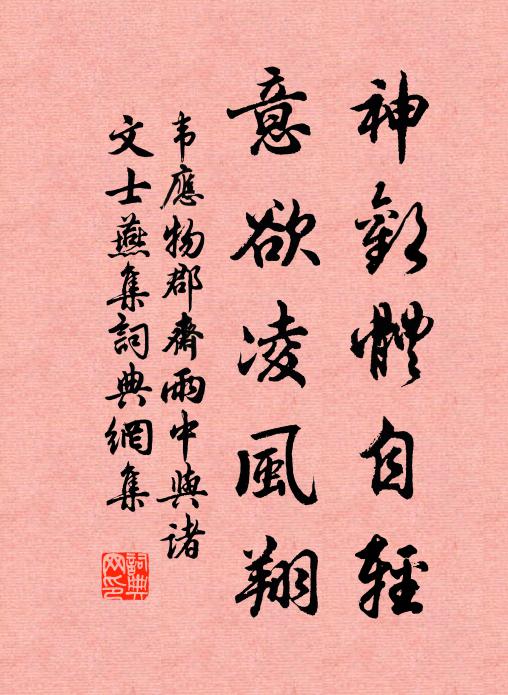 神歡體自輕
意欲凌風翔
韦應物郡齋雨中與諸
文士燕集詞典網集
詞典
网印